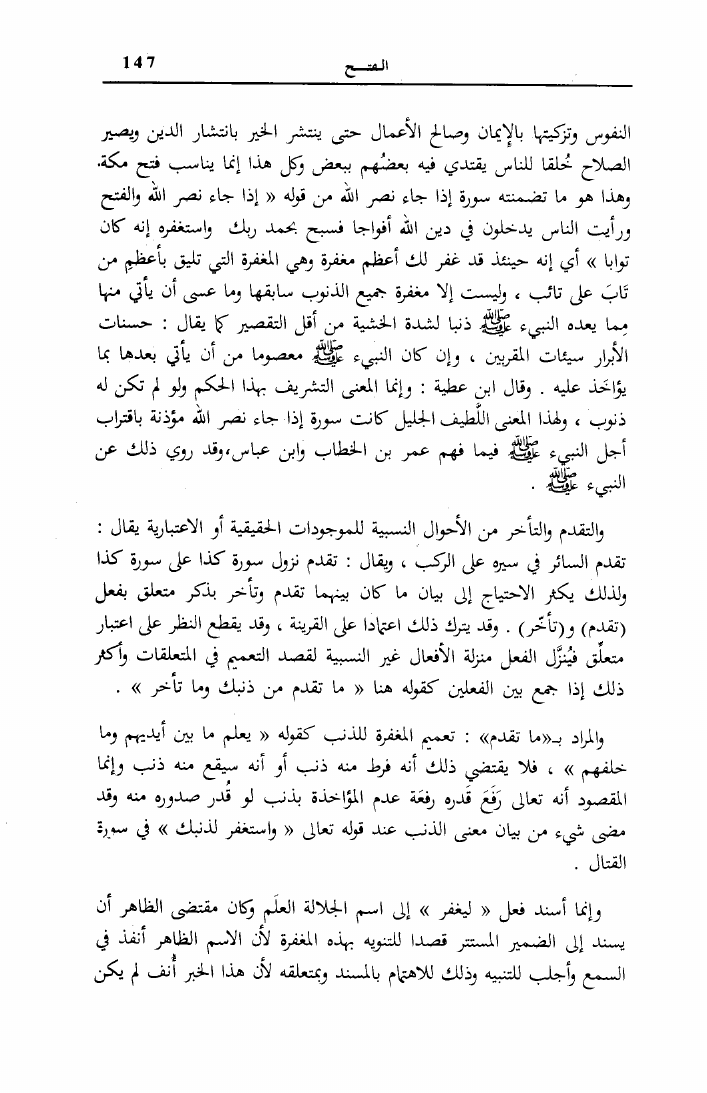 الفتـــح
147
النفوس وتزكيتها بالإيمان وصالح الأعمال حتى ينتشر الخير بانتشار الدين ويصير
الصلاح خُلقا للناس يقتدي فيه بعضُهم ببعض وكل هذا إنما يناسب فتح مكة.
وهذا هو ما تضمنته سورة إذا جاء نصر الله من قوله « إذا جاء نصر الله والفتح
ورأيت الناس يدخلون في دين الله أفواجا فسبح بحمد ربك واستغفره إنه كان
توابا » أي إنه حينئذ قد غفر لك أعظم مغفرة وهي المغفرة التي تليق بأعظمِ من
تَابَ على تائب ، وليست إلا مغفرة جميع الذنوب سابقها وما عسى أن يأتي منها
مِما يعده النبيء ﷺ ذنبا لشدة الخشية من أقل التقصير كما يقال : حسنات
الأبرار سيئات المقربين ، وإن كان النبيء ﷺ معصوما من أن يأتي بعدها بما
يؤاخَذ عليه . وقال ابن عطية : وإنما المعنى التشريف بهذا الحكم ولو لم تكن له
ذنوب ، ولهذا المعنى اللَّطيف الجليل كانت سورة إذا جاء نصر الله مؤذنة باقتراب
أجل النبيء ﷺ فيما فهم عمر بن الخطاب وابن عباس،وقد روي ذلك عن
النبيء ﷺ .
والتقدم والتأخر من الأحوال النسبية للموجودات الحقيقية أو الاعتبارية يقال :
تقدم السائر في سيره على الركب ، ويقال : تقدم نزول سورة كذا على سورة كذا
ولذلك يكثر الاحتياج إلى بيان ما كان بينهما تقدم وتأخر بذكر متعلق بفعل
(تقدم) و(تأخّر) . وقد يترك ذلك اعتمادا على القرينة ، وقد يقطع النظر على اعتبار
متعلِّق فيُنزَّل الفعل منزلة الأفعال غير النسبية لقصد التعميم في المتعلقات وأكثر
ذلك إذا جمع بين الفعلين كقوله هنا « ما تقدم من ذنبك وما تأخر » .
والمراد بـ«ما تقدم» : تعميم المغفرة للذنب كقوله « يعلم ما بين أيديهم وما
خلفهم » ، فلا يقتضي ذلك أنه فرط منه ذنب أو أنه سيقع منه ذنب وإنما
المقصود أنه تعالى رَفَعَ قَدره رِفعَة عدم المؤاخذة بذنب لو قُدر صدوره منه وقد
مضى شيء من بيان معنى الذنب عند قوله تعالى « واستغفر لذنبك » في سورة
القتال .
وإنما أسند فعل « ليغفر » إلى اسم الجلالة العلَم وكان مقتضى الظاهر أن
يسند إلى الضمير المستتر قصدا للتنويه بهذه المغفرة لأن الاسم الظاهر أنفذ في
السمع وأجلب للتنبيه وذلك للاهتمام بالمسند وبمتعلقه لأن هذا الخبر أُنف لم يكن